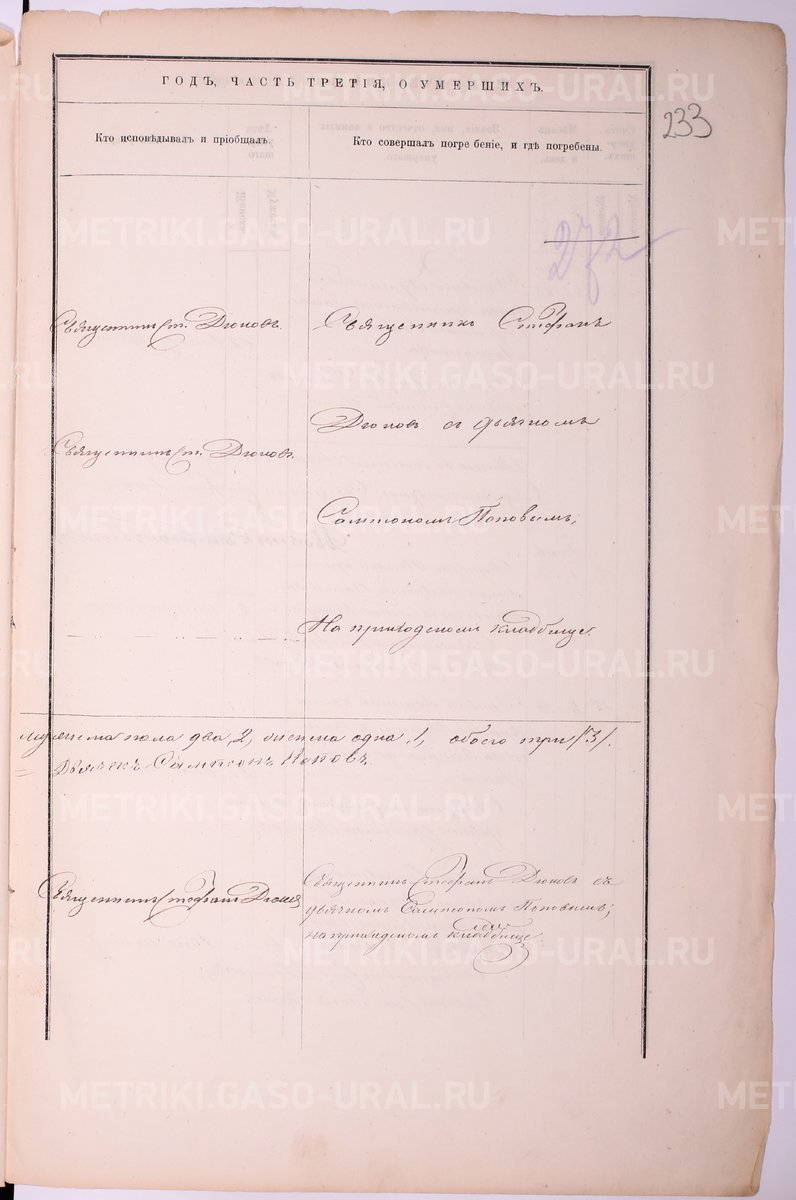 ГОДЪ, ЧАСТЬ ТРЕТІЯ, О УМЕРШИХЪ.
233
Кто исповѣдывалъ и пріобщалъ.
Кто совершалъ погребеніе, и гдѣ погребены.
272
Священникъ Ст. Дюковъ.
Священникъ Стефанъ
Дюковъ съ дьячкомъ
Священникъ Ст. Дюковъ.
Сампсономъ Поповымъ;
На приходскомъ кладбище.
мужеска пола два, 2, женска одна, 1, обоего три /3/.
Дьячекъ Сампсонъ Поповъ.
Священникъ Стефанъ Дюковъ
Священникъ Стефанъ Дюковъ съ
дьячкомъ Сампсономъ Поповымъ;
на приходскомъ кладбище.
METRIKI.GASO-URAL.RU